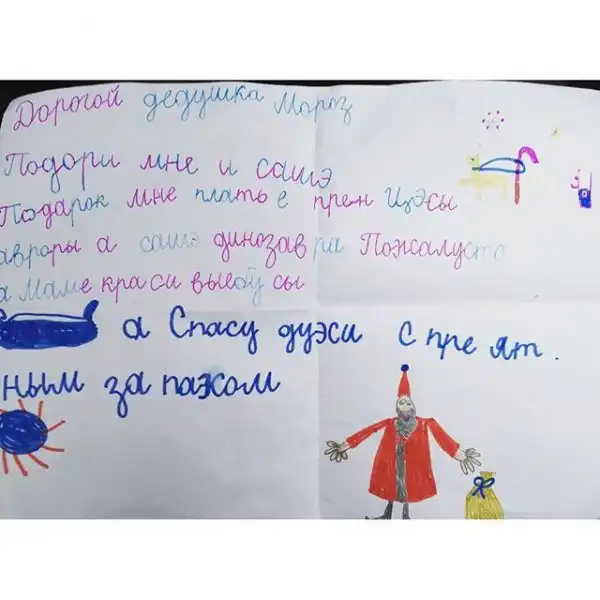 Дорогой дедушка Мороз
Подори мне и сашэ
Подарок мне плать е прен Цэсы
авроры а сашэ динозав ра Пожалуста
а Маме краси выебу сы
а Спасу дуэси с пре ят.
ным за пахом